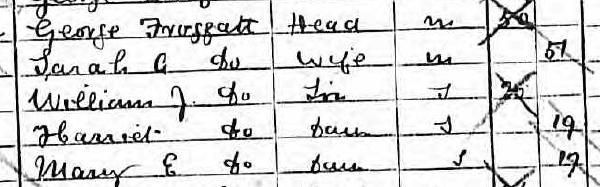 George Froggatt Head m 50
Sarah A do Wife m 51
William J. do Son S 25
Harriet do Daur S 19
Mary E do Daur S 17